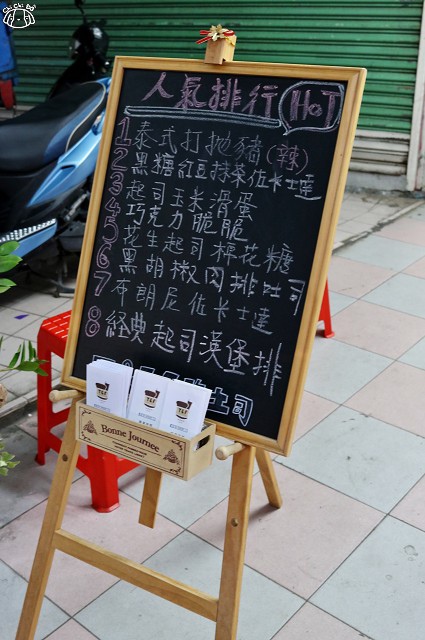 Chi Chi Bo
人氣排行 HOT
1 泰式打拋豬(辣)
2 黑糖紅豆抹茶佐卡士達
3 起司玉米滑蛋
4 巧克力脆脆
5 花生起司棉花糖
6 黑胡椒肉排吐司
7 布朗尼佐卡士達
8 経典起司漢堡排
土司
T&P
T&P
T&P
Bonne Journee